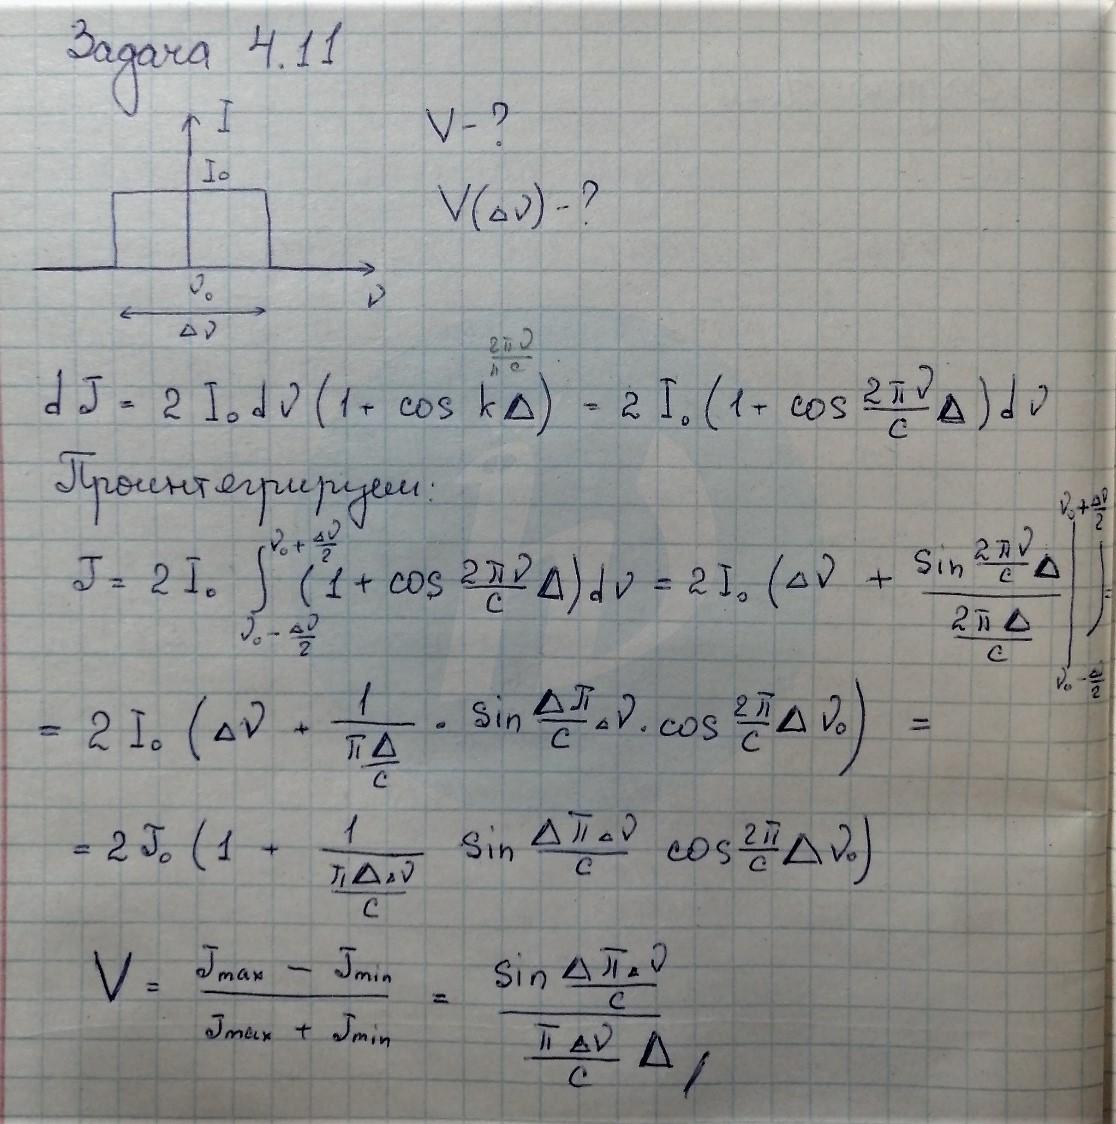 Задача 4.11
I
I₀
ν₀
ν
Δν
V - ?
V(Δν) - ?
2πν/c
dJ = 2 I₀ dν (1 + cos kΔ) = 2 I₀ (1 + cos 2πν/c Δ) dν
Проинтегрируем:
J = 2 I₀ ∫_{ν₀ - Δν/2}^{ν₀ + Δν/2} (1 + cos 2πν/c Δ) dν = 2 I₀ (Δν + (sin 2πν/c Δ)/(2πΔ/c) |_{ν₀ - Δ/2}^{ν₀ + Δν/2}) =
= 2 I₀ (Δν + 1/(πΔ/c) · sin Δπ/c Δν · cos 2π/c Δ ν₀) =
= 2 J₀ (1 + 1/(πΔΔν/c) sin ΔπΔν/c cos 2π/c Δ ν₀)
V = (Jmax - Jmin)/(Jmax + Jmin) = (sin ΔπΔν/c)/(πΔν/c Δ),